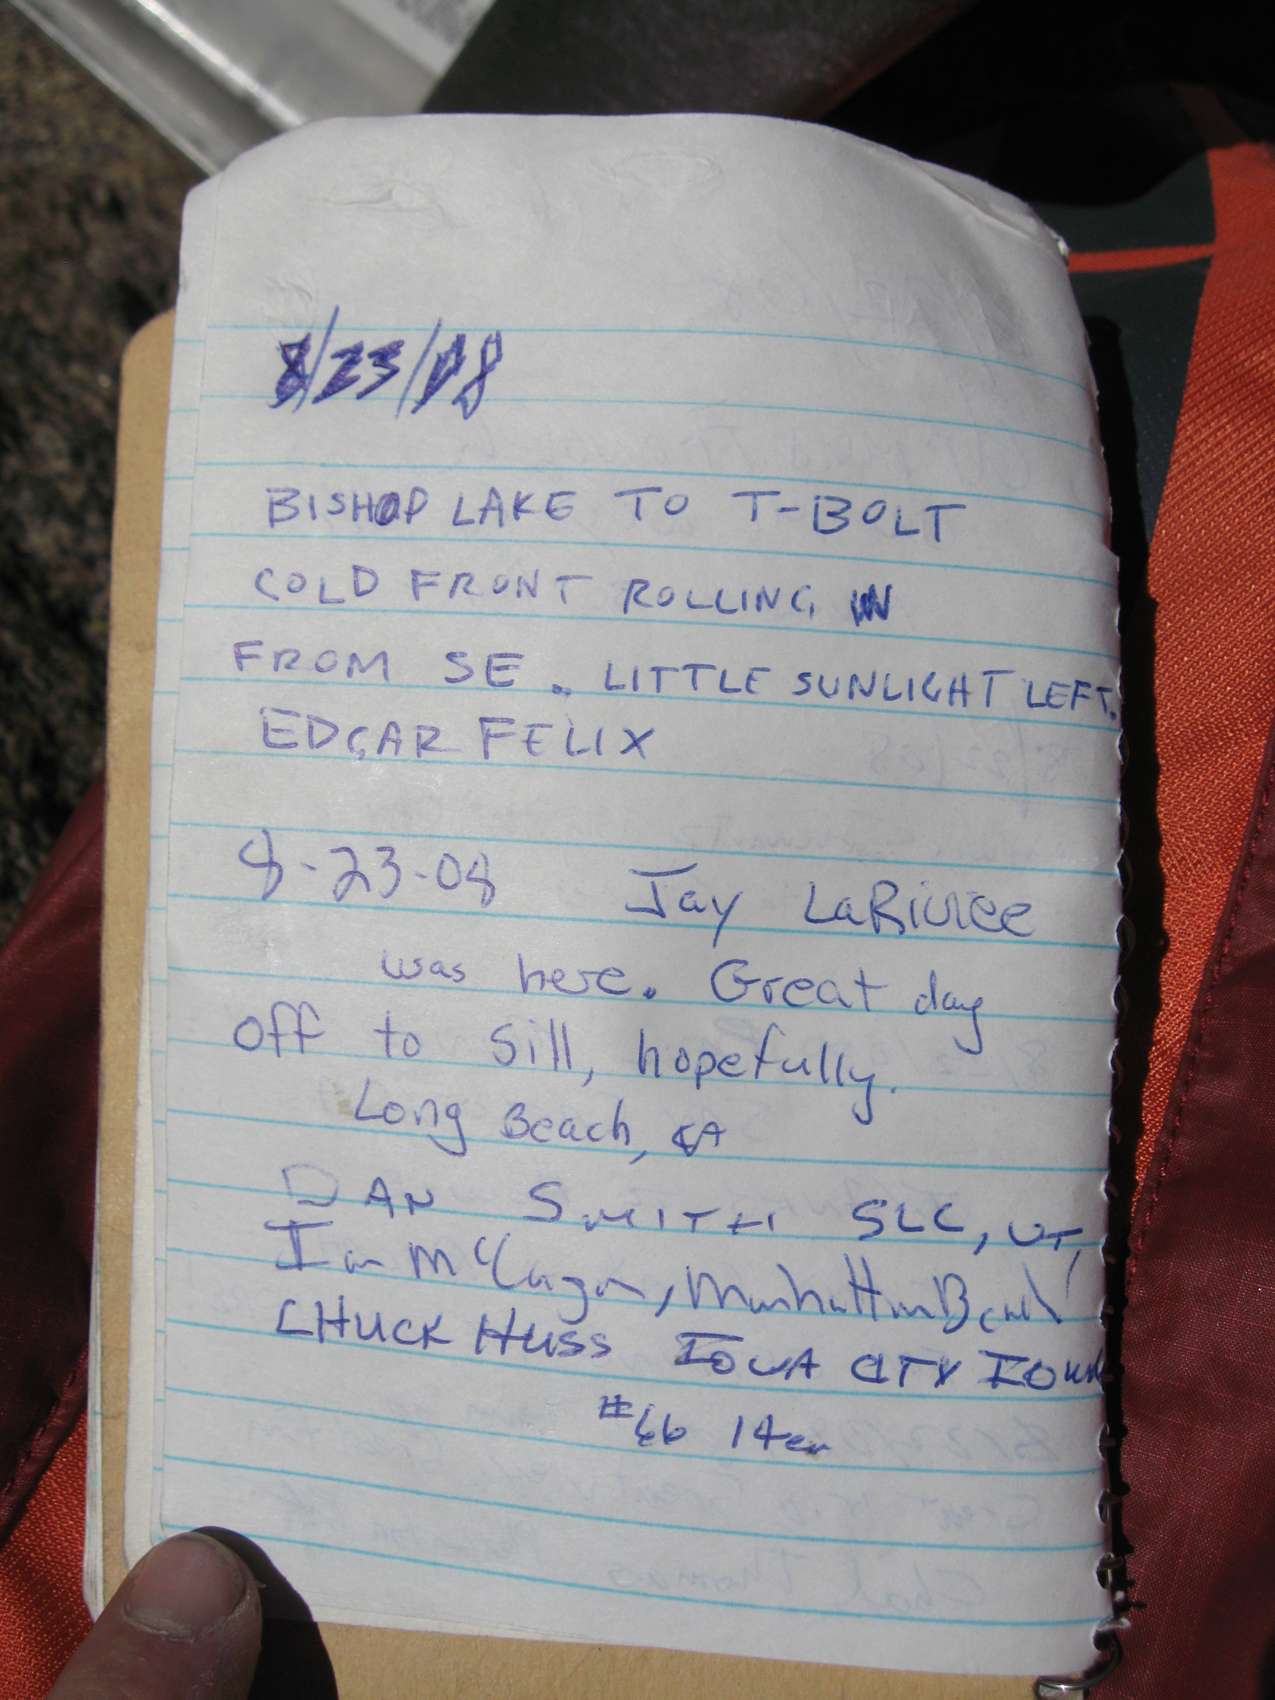 8/23/08
BISHOP LAKE TO T-BOLT
COLD FRONT ROLLING IN
FROM SE.. LITTLE SUNLIGHT LEFT.
EDGAR FELIX
8-23-08 Jay LaRiviee
was here. Great day
off to Sill, hopefully.
Long Beach, CA
DAN SMITH SLC, UT,
Ian Manhattan Beach
CHUCK HUSS IOWA CITY IOWA
#66 14er